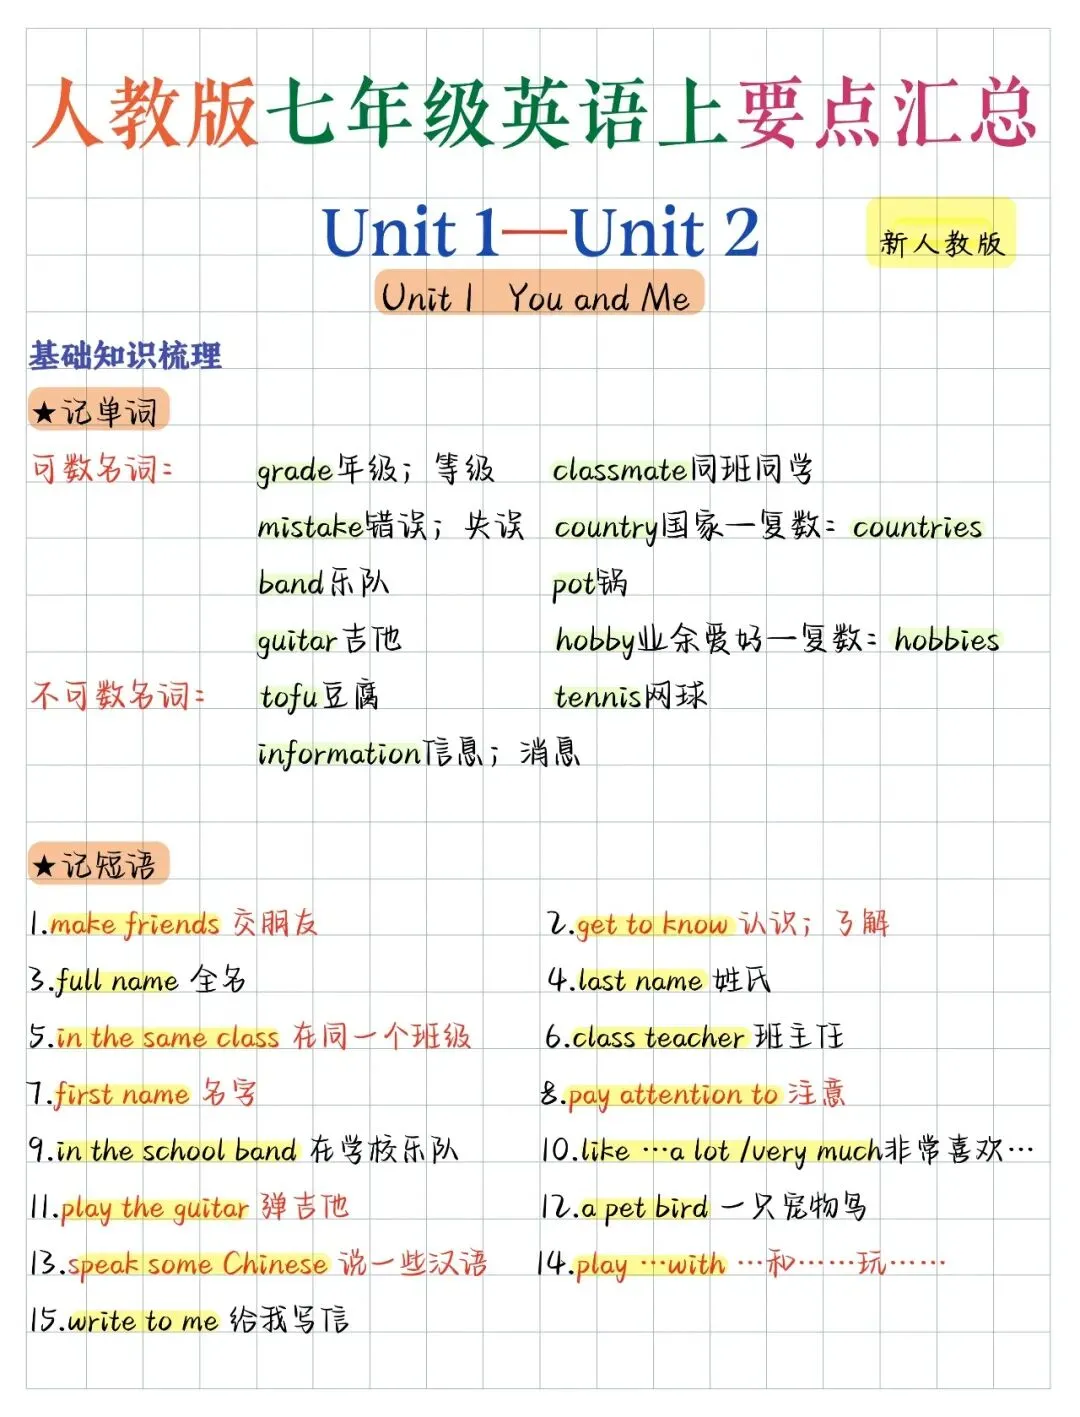 人教版七年级英语上要点汇总
Unit 1—Unit 2
新人教版
Unit 1 You and Me
基础知识梳理
★记单词
可数名词： grade年级；等级 classmate同班同学
mistake错误；失误 country国家—复数：countries
band乐队 pot锅
guitar吉他 hobby业余爱好—复数：hobbies
不可数名词： tofu豆腐 tennis网球
information信息；消息
★记短语
1.make friends 交朋友 2.get to know 认识；了解
3.full name 全名 4.last name 姓氏
5.in the same class 在同一个班级 6.class teacher 班主任
7.first name 名字 8.pay attention to 注意
9.in the school band 在学校乐队 10.like …a lot /very much非常喜欢…
11.play the guitar 弹吉他 12.a pet bird 一只宠物鸟
13.speak some Chinese 说一些汉语 14.play …with …和……玩……
15.write to me 给我写信